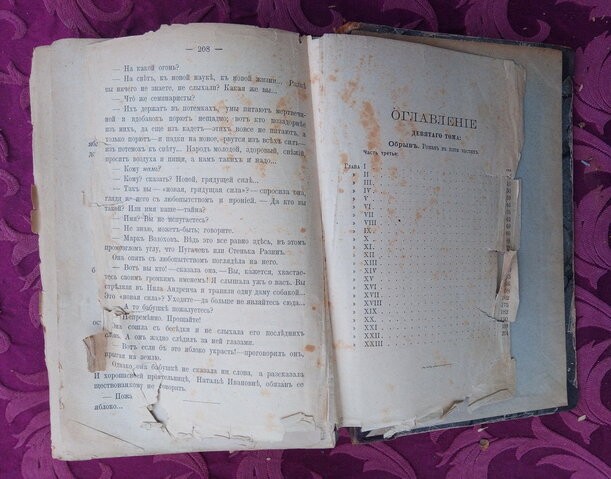 — 208 —
— На какой огонь?
— На свѣтъ, къ новой наукѣ, къ новой жизни... Развѣ
вы ничего не знаете, не слыхали? Какая же вы...
— Что не семинаристы?
— Ихъ держатъ въ потемкахъ, умы питаютъ мертвечи-
ной и вдобавокъ порютъ нещадно; вотъ кто позадорнѣе
изъ нихъ, да еще изъ кадетъ — этихъ вовсе не питаютъ, а
только порютъ — и падки на новое, рвутся изъ всѣхъ силъ —
изъ потемокъ къ свѣту... Народъ молодой, здоровый, свѣжій,
проситъ воздуха и пищи, а намъ такихъ и надо...
— Кому намъ?
— Кому? сказать? Новой, грядущей силѣ...
— Такъ вы — «новая, грядущая сила»? — спросила она,
глядя на него съ любопытствомъ и ироніей. — Да кто вы
такой? Или имя ваше — тайна?
— Имя? Вы не испугаетесь?
— Не знаю, можетъ быть; говорите.
— Маркъ Волоховъ. Вѣдь это все равно здѣсь, въ этомъ
промозгломъ углу, что Пугачевъ или Стенька Разинъ.
Она опять съ любопытствомъ поглядѣла на него.
— Вотъ вы кто! — сказала она. — Вы, кажется, хвастае-
тесь своимъ громкимъ именемъ! Я слышала ужъ о васъ. Вы
стрѣляли въ Нила Андреича и травили одну даму собакой...
Это «новая сила»? Уходите — да больше не являйтесь сюда...
— А то бабушкѣ пожалуетесь?
— Непремѣнно. Прощайте!
Она сошла съ бесѣдки и не слыхала его послѣднихъ
словъ. А онъ жадно слѣдилъ за ней глазами.
— Вотъ если бъ это яблоко украсть! — проговорилъ онъ,
прыгая на землю.
Однако она бабушкѣ не сказала ни слова, а разсказала
хорошенькой пріятельницѣ, Натальѣ Ивановнѣ, обязавъ ее
никому не говорить.
яблоко...
ОГЛАВЛЕНІЕ
ДЕВЯТАГО ТОМА:
Обрывъ. Романъ въ пяти частяхъ.
Часть третья:
Глава I
» II
» III.
» IV.
» V.
» VI.
» VII
» VIII
» IX.
» X.
» XI.
» XII
» XIII
» XIV
» XV.
» XVI.
» XVII
» XVIII
» XIX
» XX.
» XXI.
» XXII
» XXIII